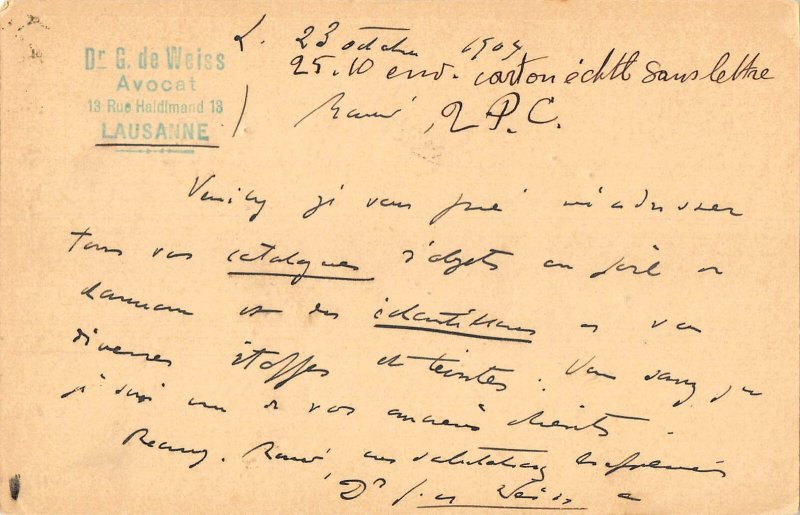 Dr G. de Weiss
Avocat
13 Rue Haldimand 13
LAUSANNE
L. 23 octobre 1909
25.10 env. carton échtll sans lettre
2 P.C.
Veuillez je vous prie m'adresser
tous vos catalogues d'objets en poil de
et des échantillons de vos
diverses étoffes et teintes. Vous savez que
je suis un de vos anciens clients.
Recevez, mes salutations empressées
Dr G. de Weiss